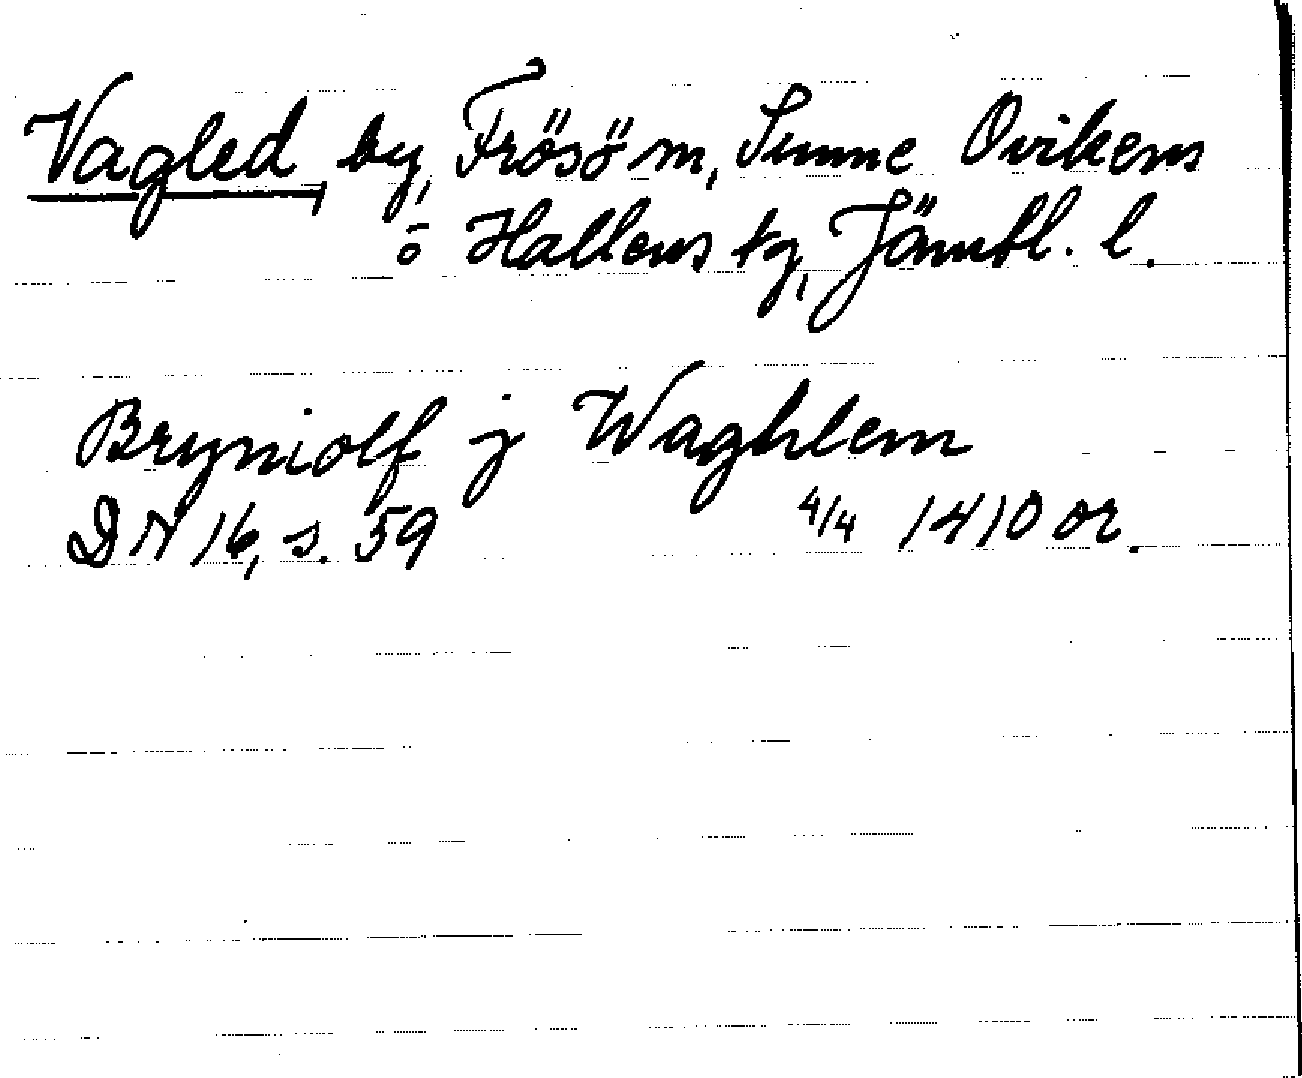 Vagled, by, Frösö sn, Sunne Ovikens
o Hallens tg, Jämtl. l.
Bryniolf j Waghlem
DN 16, s. 59 4/4 1410 or.